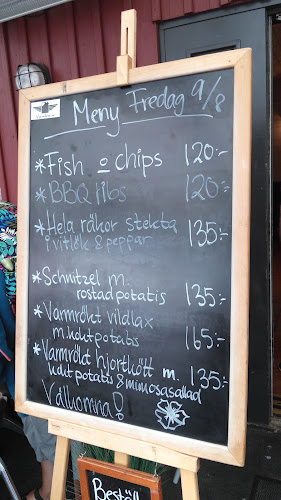 Meny Fredag 9/8
*Fish o chips 120:-
*BBQ ribs 120:-
*Hela räkor stekta
i vitlök & peppar 135:-
*Schnitzel m.
rostad potatis 135:-
*Varmrökt vildlax
m. kokt potatis 165:-
*Varmrökt hjortkött m.
kokt potatis & mimosasallad 135:-
Välkomna!
Beställ